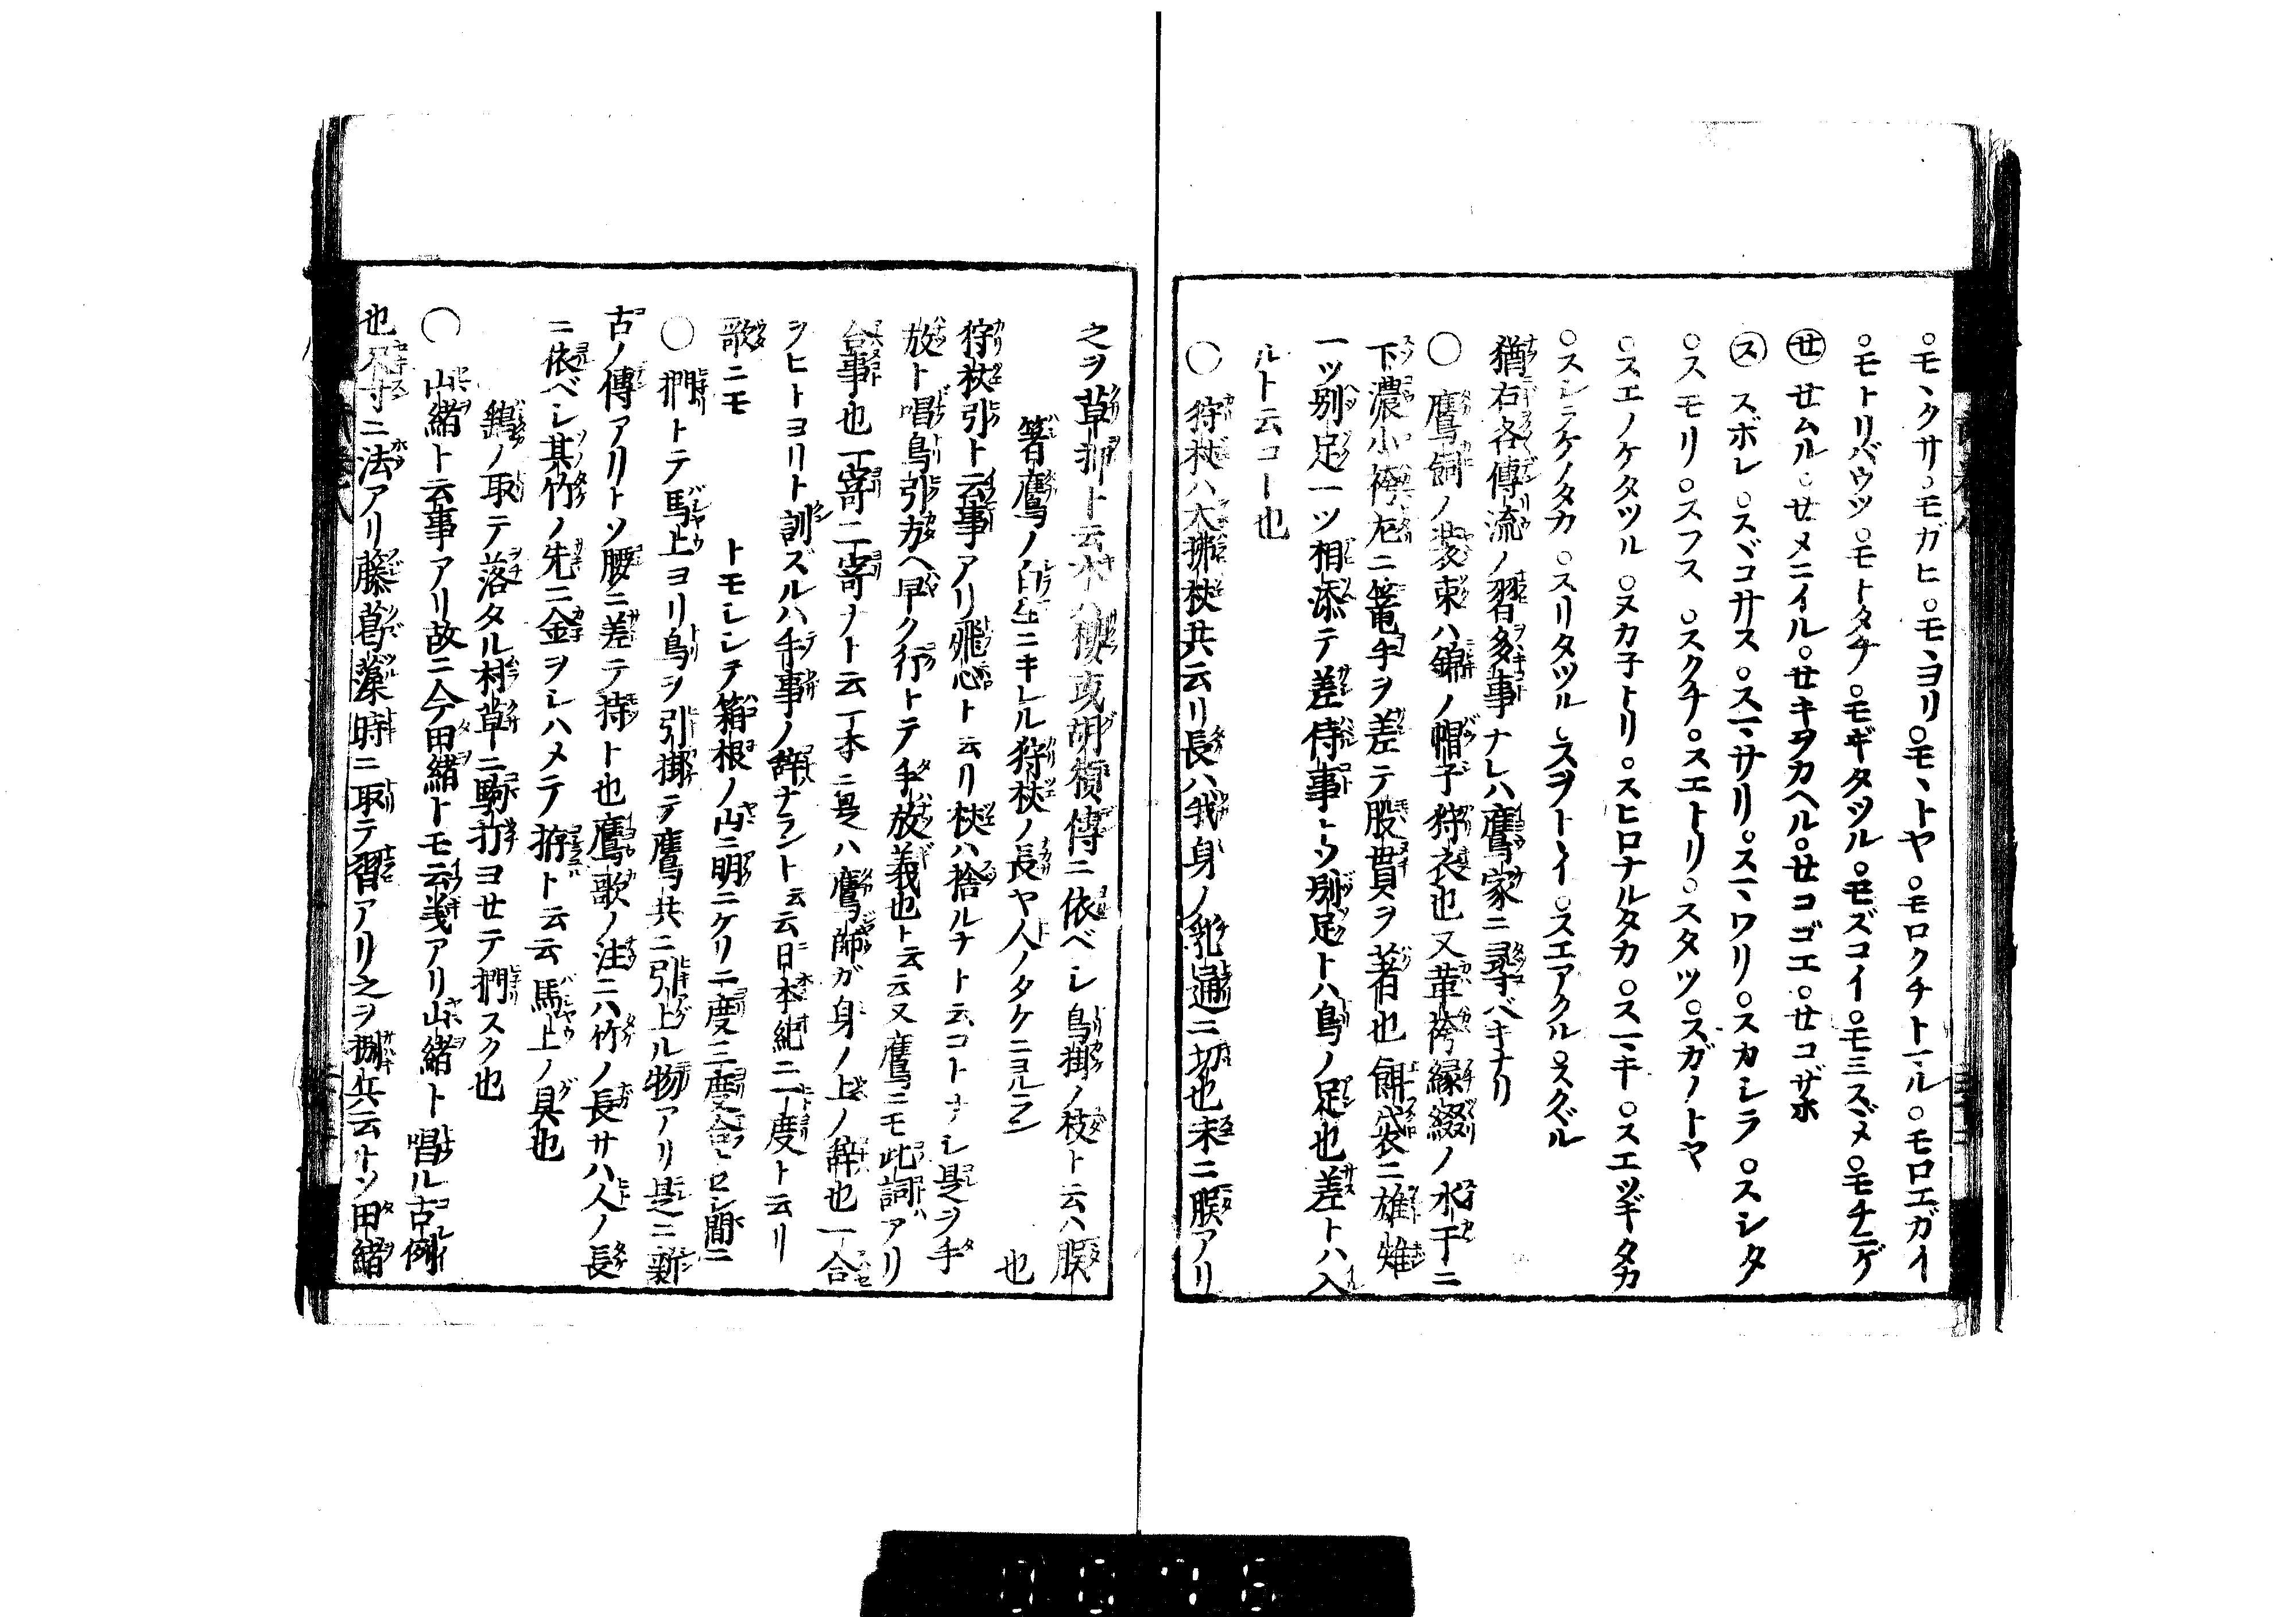 ○モヽクサ○モガヒ○モヽヨリ○モヽトヤ○モロクチトール○モロエガイ
○モトリバウツ○モトタチ○モギタツル○モズコイ○モミスヾメ○モチニゲ
㋝セムル○セメニイル○セキヲカヘル○セコゴエ○セコザホ
㋜スボレ○スヾコサス○スヽサリ○スヽワリ○スカシラ○スシタ
○スモリ○スフス○スクチ○スエトリ○スタツ○スガノトヤ
○スエノケタツル○ヌカ子トリ○スヒロナルタカ○スヽキ○スエツギタカ
○スシニケノタカ○スリタツル○スヲトイ○スエアクル○スグル
猶右各傳流ノ習多事ナレハ鷹家ニ尋バキナリ
○鷹飼ノ装束ハ錦ノ帽子狩衣也又革袴縁綴ノ水干ニ
下濃小袴左ニ篭手ヲ差テ股貫ヲ著也餌袋ニ雄雉
一ツ別足一ツ相添テ差侍事トゾ別足トハ鳥ノ足也差トハ入
ルト云コー也
○狩杖ハ犬拂杖共云リ長ハ我身ノ乳通ニ切也末ニ朕アリ
之ヲ草抑ト云木ハ依ベシ鳥掛ノ枝ト云ハ朕
也
箸鷹ノ白生ニキレル狩杖ノ長ヤ人ノタケニヨルラン
狩杖引ト云事アリ飛心ト云リ杖ハ捨ルナト云コトナシ是ヲ手
放ト唱鳥引方ヘ早ク行トテ手放義也ト云云又鷹ニモ此詞アリ
合事也一寄二寄ナト云丁本ニ是ハ鷹師ガ身ノ上ノ辞也一合
ヲヒトヨリト訓ズルハ手事ノ辞ナラント云云日本紀ニ一度ト云リ
歌ニモ　トモシシテ箱根ノ山ニ明ニケリ二度三度合トセシ間ニ
○捫トテ馬上ヨリ鳥ヲ引掛テ鷹共ニ引上ル物アリ是ニ新
古ノ傳アリトソ腰ニ差テ持ト也鷹歌ノ注ニハ竹ノ長サハ人ノ長
ニ依ベシ其竹ノ先ニ金ヲシハメテ拵ト云云馬上ノ具也
鶉ノ取テ落タル村草ニ駒打ヨセテ捫スク也
○山緒ト云事アリ故ニ今田緒トモ云義アリ山緒ト唱ル古例
也尺寸ニ法アリ藤葛藻時ニ取テ習アリ之ヲ捌共云トソ田緒